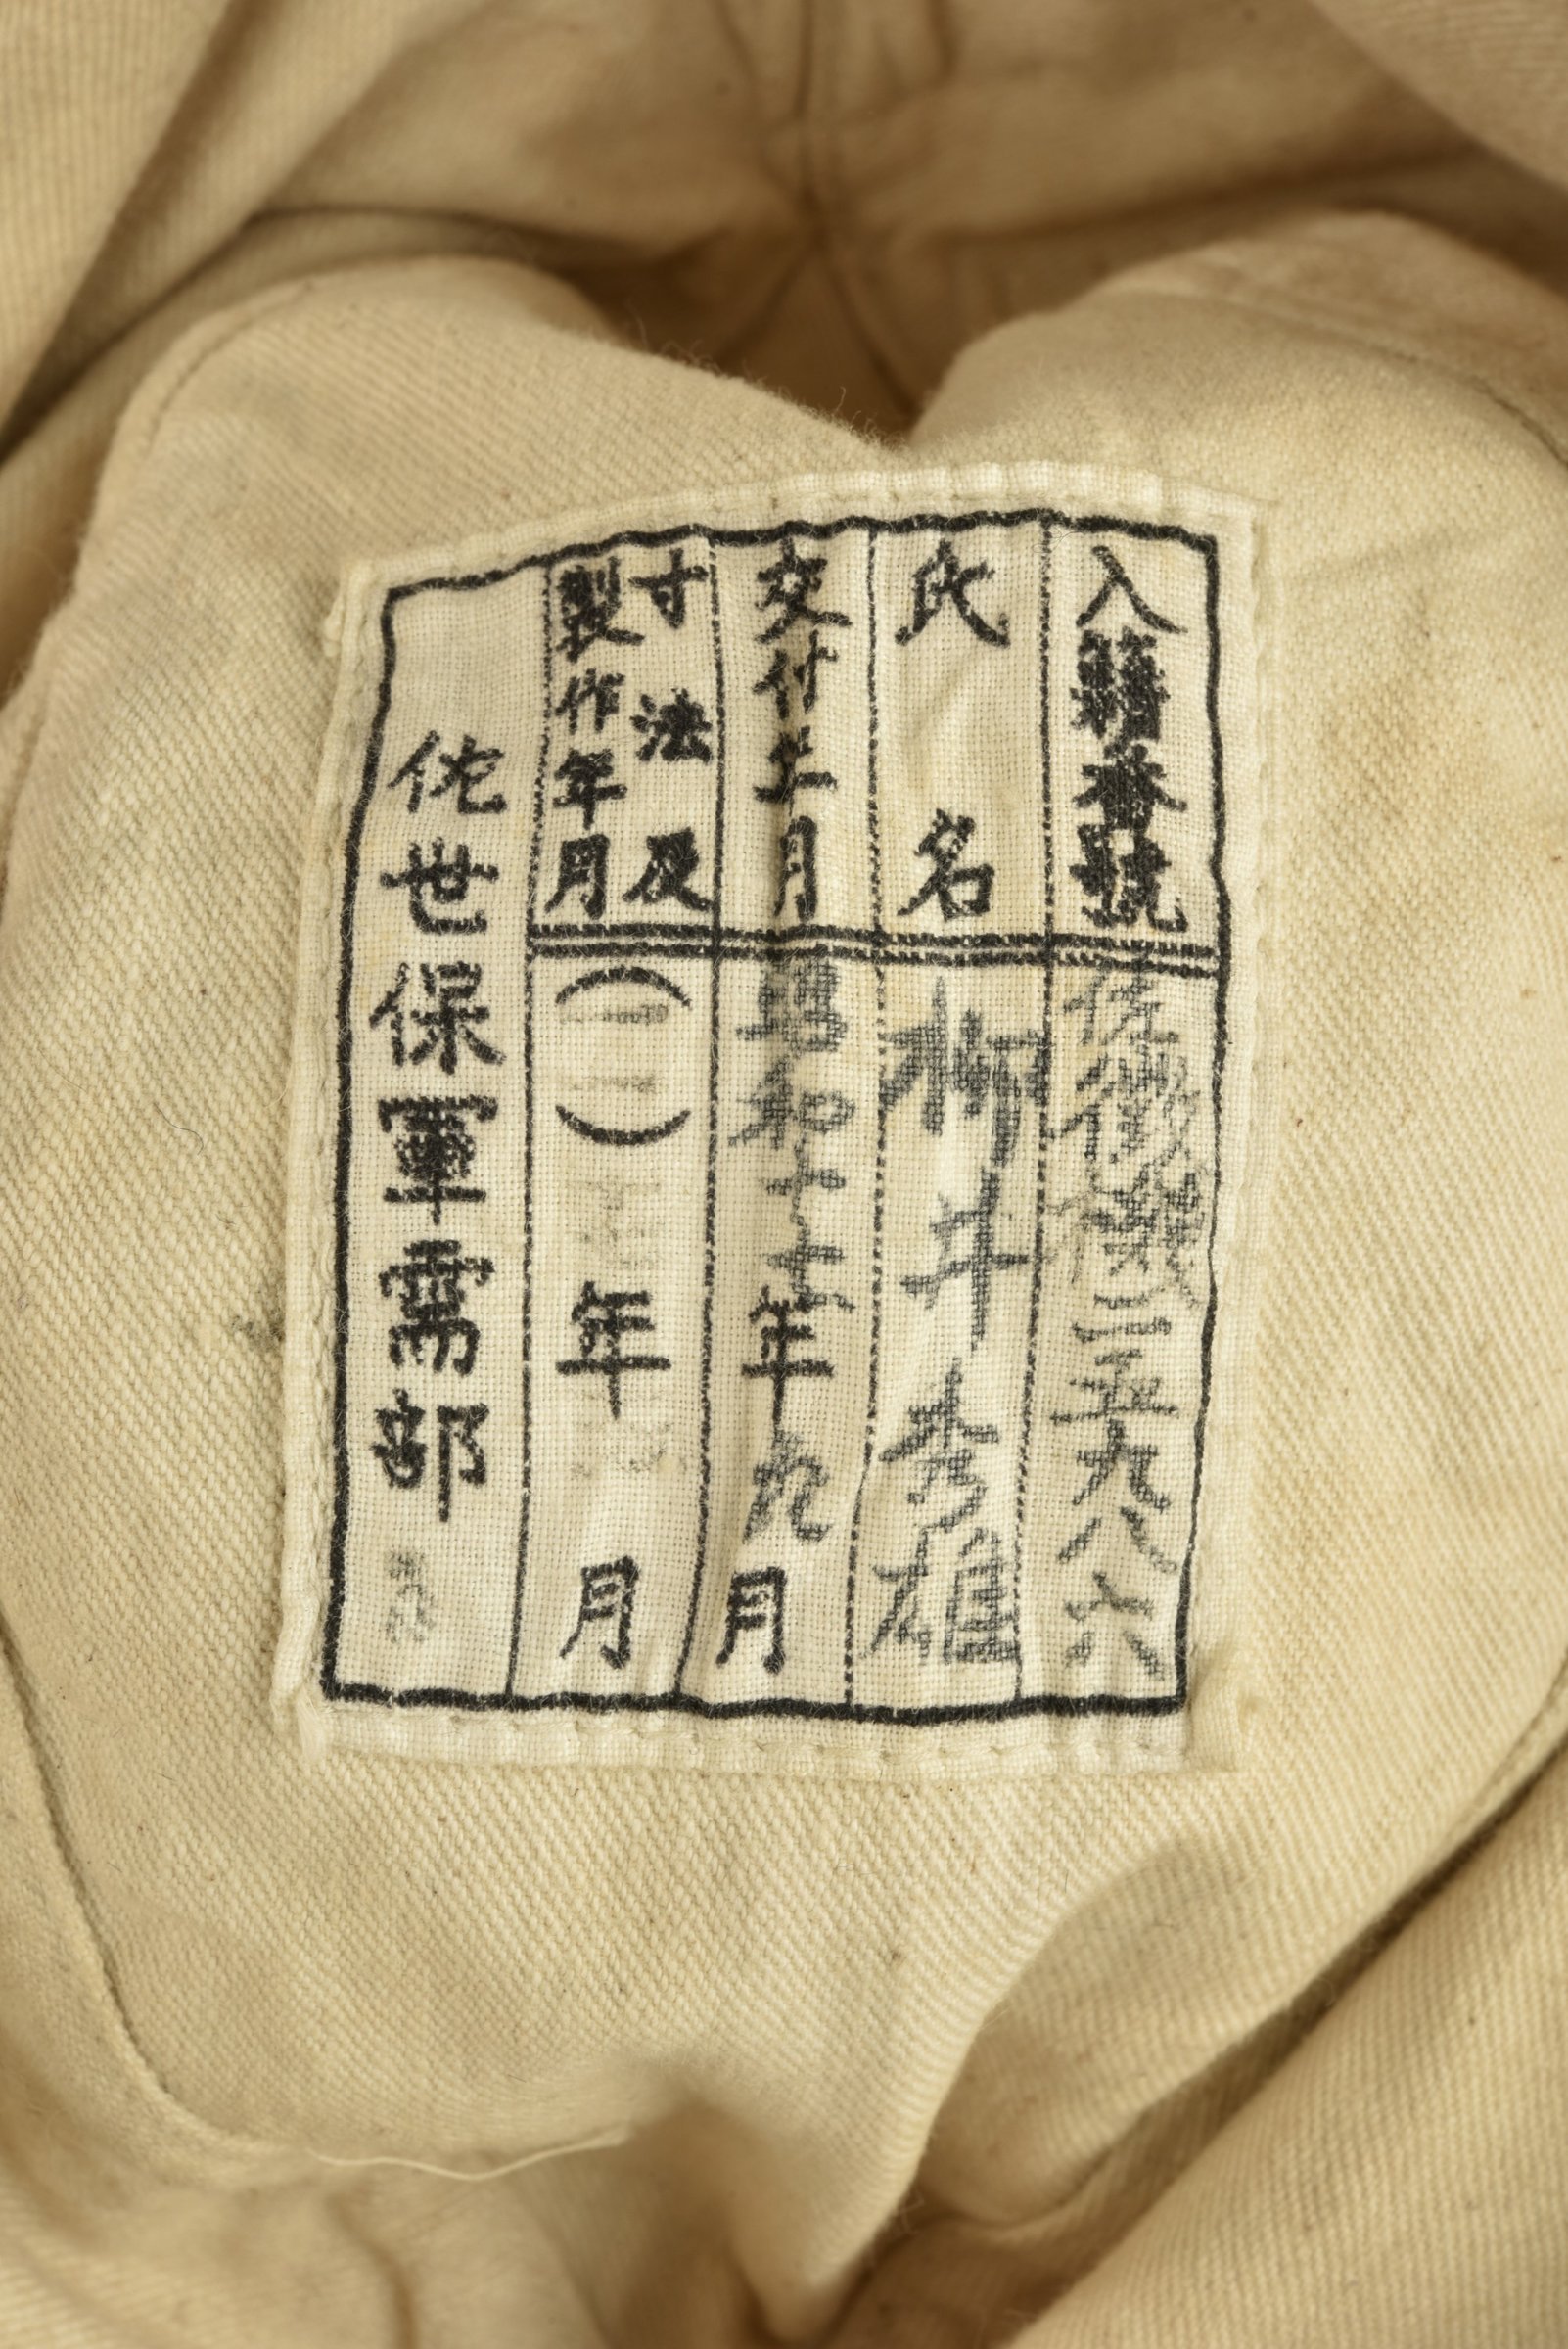 入籍番號 佐徴 三五九八六
氏名 柳井秀雄
交付年月 昭和十 年九月
寸法及
製作年月 ( ) 年 月
佐世保軍需部